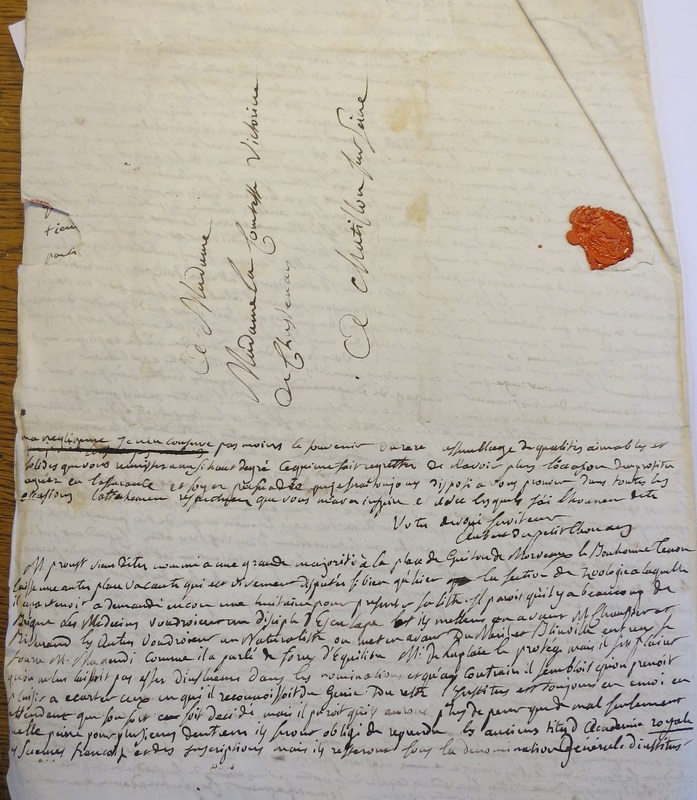 A Madame
Madame la Comtesse Victorine
de Chastenay
A Chatillon sur Seine
tien
parti
ma negligence je n'en conserve pas moins le souvenir du rare assemblage de qualités aimables et
solides que vous reunissez a un si haut degré ce qui me fait regretter de n'avoir plus l'occasion d'en profiter
ayez en l'assurance et soyez persuadée que je serai toujours disposé a vous prouver dans toutes les
occasions l'attachement respectueux que vous m'avez inspiré et avec lesquels j'ai l'honneur d'etre
Votre devoué serviteur
Aubert du petit Thouars
M proust vient d'etre nommé a une grande majorité à la place de Guiton de Morveau le Bonhomme
laisse une autre place vacante qui est vivement disputée si bien qu'hier la section de zoologie a laquelle
il appartenoit a demandé encore une huitaine pour presenter sa liste. Il paroit qu'il y a beaucoup de
Brigue les Medecins voudroient un disciple d'Esculape et ils mettent en avant M. Chaussier et
Richerand les autres voudroient un Naturaliste on met en avant Du Mesnil et Blinville
M. Magendi comme il a parlé de forces d'Equilibre M. de la place le protege mais il se plaint
qu'on ne lui laissoit pas assez d'influence dans les nominations et qu'au contraire il sembloit qu'on prenoit
plaisir a ecarter ceux en qui il reconnoissoit du Genie Du reste l'institut est toujours en emoi en
attendant que son sort soit decidé, mais il paroit qu'il aura plus de peur que de mal seulement
belle peine pour plusieurs d'entr'eux ils seront obligé de reprendre les anciens titres d'Academie royale
des Sciences françoise et des inscriptions mais ils resteront sous la denomination generale d'institut